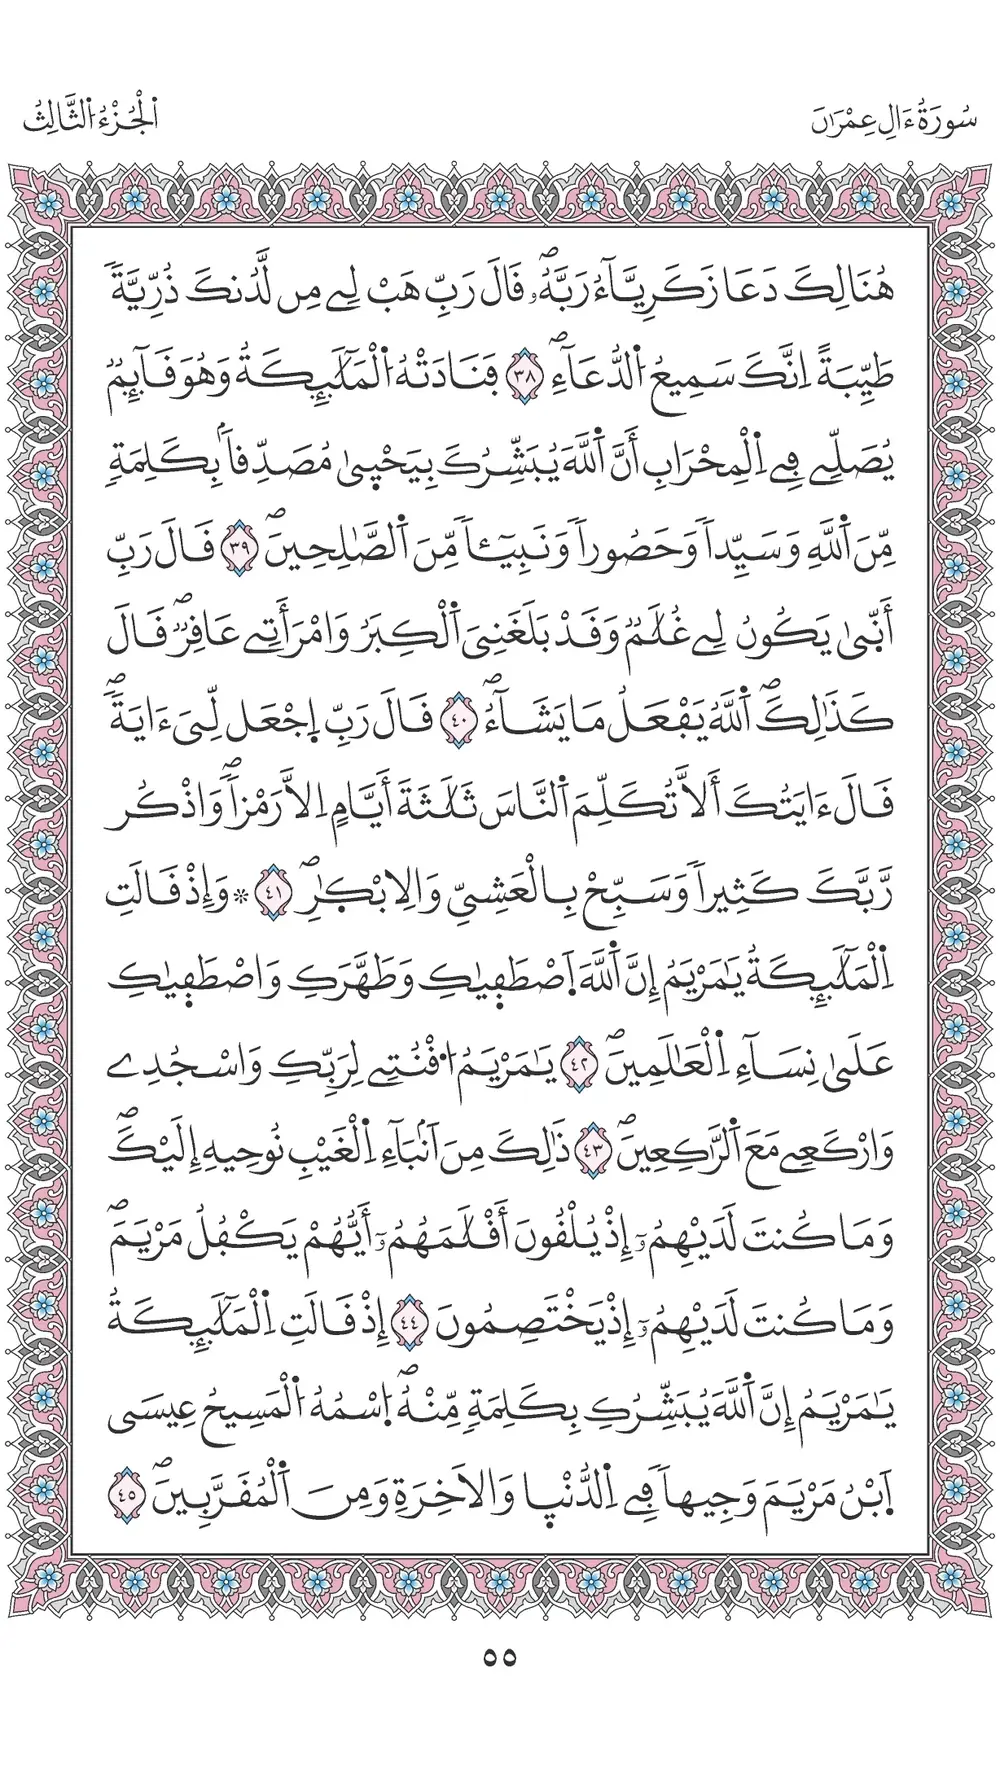 سُورَةُ ءَالِ عِمْرَٰنَ
اَ۬لْجُزْءُ اُ۬لثَّالِثُ
هُنَالِكَ دَعَا زَكَرِيَّآءُ رَبَّهُۥۖ قَالَ رَبِّ هَبْ لِے مِن لَّدُنكَ ذُرِّيَّةٗ
طَيِّبَةً اِنَّكَ سَمِيعُ اُ۬لدُّعَآءِۖ ٣٨ فَنَادَتْهُ اُ۬لْمَلَٰٓئِكَةُ وَهُوَ قَآئِمٞ
يُصَلِّے فِے اِ۬لْمِحْرَابِ أَنَّ اَ۬للَّهَ يُبَشِّرُكَ بِيَحْيٜيٰ مُصَدِّقاَۢ بِكَلِمَةٖ
مِّنَ اَ۬للَّهِ وَسَيِّداٗ وَحَصُوراٗ وَنَبِيٓـٔاٗ مِّنَ اَ۬لصَّٰلِحِينَۖ ٣٩ قَالَ رَبِّ
أَنّ۪يٰ يَكُونُ لِے غُلَٰمٞ وَقَدْ بَلَغَنِيَ اَ۬لْكِبَرُ وَامْرَأَتِے عَاقِرٞۖ قَالَ
كَذَٰلِكَۖ اَ۬للَّهُ يَفْعَلُ مَا يَشَآءُۖ ٤٠ قَالَ رَبِّ اِ۪جْعَل لِّيَ ءَايَةٗۖ
قَالَ ءَايَتُكَ أَلَّا تُكَلِّمَ اَ۬لنَّاسَ ثَلَٰثَةَ أَيَّامٍ اِلَّا رَمْزاٗۖ وَاذْكُر
رَّبَّكَ كَثِيراٗ وَسَبِّحْ بِالْعَشِيِّ وَالِابْكٰ۪رِۖ ٤١ ۞ وَإِذْ قَالَتِ
اِ۬لْمَلَٰٓئِكَةُ يَٰمَرْيَمُ إِنَّ اَ۬للَّهَ اَ۪صْطَف۪يٰكِ وَطَهَّرَكِ وَاصْطَف۪يٰكِ
عَلَىٰ نِسَآءِ اِ۬لْعَٰلَمِينَۖ ٤٢ يَٰمَرْيَمُ اُ۟قْنُتِے لِرَبِّكِ وَاسْجُدِے
وَارْكَعِے مَعَ اَ۬لرَّٰكِعِينَۖ ٤٣ ذَٰلِكَ مِنَ اَنۢبَآءِ اِ۬لْغَيْبِ نُوحِيهِ إِلَيْكَۖ
وَمَا كُنتَ لَدَيْهِمُۥٓ إِذْ يُلْقُونَ أَقْلَٰمَهُمُۥٓ أَيُّهُمْ يَكْفُلُ مَرْيَمَۖ
وَمَا كُنتَ لَدَيْهِمُۥٓ إِذْ يَخْتَصِمُونَ ٤٤ إِذْ قَالَتِ اِ۬لْمَلَٰٓئِكَةُ
يَٰمَرْيَمُ إِنَّ اَ۬للَّهَ يُبَشِّرُكِ بِكَلِمَةٖ مِّنْهُۖ اُ۪سْمُهُ اُ۬لْمَسِيحُ عِيسَى
اَ۪بْنُ مَرْيَمَ وَجِيهاٗ فِے اِ۬لدُّنْي۪ا وَالَاخِرَةِ وَمِنَ اَ۬لْمُقَرَّبِينَۖ ٤٥
٥٥